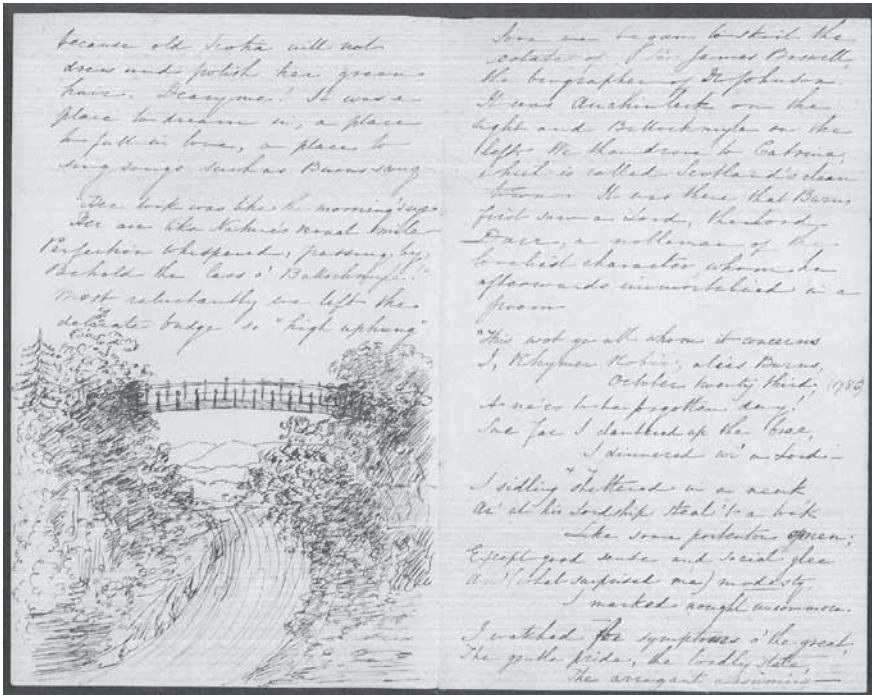 because old Scotia will not
dress and polish her green
hair. Deary me! It was a
place to dream in, a place
to fall in love, a place to
sing songs such as Burns sang
"Her look was like the morning's eye
Her air like Nature's vernal smile
Perfection whispered, passing by,
Behold the lass o' Ballochmyle!"
Most reluctantly we left the
delicate bridge so "high uphung"
Soon we began to skirt the
estate of Sir James Boswell,
the biographer of Dr Johnson.
It was Auchinleck on the
right and Ballochmyle on the
left. We then drove to Catrine,
which is called Scotland's clean
town. It was there that Burns
first saw a Lord, the Lord
Daer, a nobleman of the
loveliest character, whom he
afterwards immortalized in a
poem
"This wot ye all whom it concerns
I, Rhymer Robin, alias Burns,
October twenty third, (1786)
A ne'er to be forgotten day!
Sae far I clambered up the brae,
I dinnered wi' a Lord—
I sidling sheltered in a neuk
An' at his Lordship steal't a look
Like some portentous omen;
Except good sense and social glee
An' (what surprised me) modesty,
I marked nought uncommon.
I watched for symptoms o' the great,
The gentle pride, the lordly state,
The arrogant assuming—